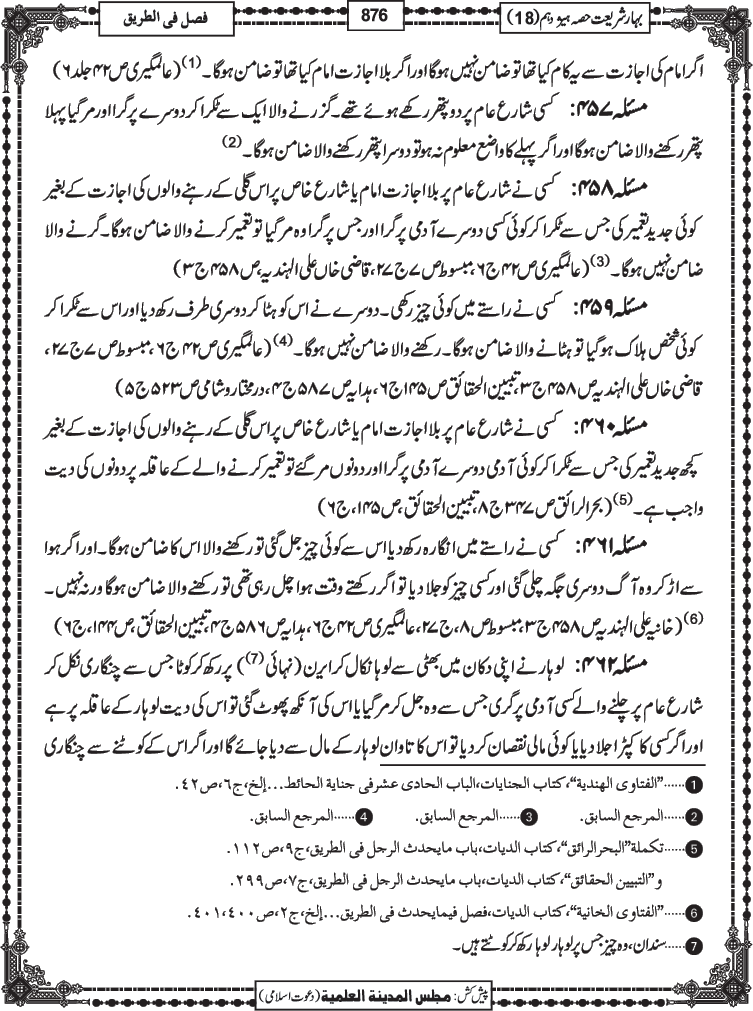 بہارِ شریعت حصہ ہیژدہم (18)
876
فصل فی الطریق
اگر امام کی اجازت سے یہ کام کیا تھا تو ضامن نہیں ہوگا اور اگر بلا اجازت امام کیا تھا تو ضامن ہوگا۔(1) (عالمگیری ص۴۲ جلد ۶)
مسئلہ ۴۵۷: کسی شارع عام پر دو پتھر رکھے ہوئے تھے۔ گزرنے والا ایک سے ٹکرا کر دوسرے پر گرا اور مر گیا پہلا
پتھر رکھنے والا ضامن ہوگا اور اگر پہلے کا واضع معلوم نہ ہو تو دوسرا پتھر رکھنے والا ضامن ہوگا۔(2)
مسئلہ ۴۵۸: کسی نے شارع عام پر بلا اجازت امام یا شارع خاص پر اس گلی کے رہنے والوں کی اجازت کے بغیر
کوئی جدید تعمیر کی جس سے ٹکرا کر کوئی کسی دوسرے آدمی پر گرا اور جس پر گرا وہ مر گیا تو تعمیر کرنے والا ضامن ہوگا۔ گرنے والا
ضامن نہیں ہوگا۔(3) (عالمگیری ص۴۲ ج۶، مبسوط ص۷ ج۲۷، قاضی خاں علی الہندیہ، ص۴۵۸ ج۳)
مسئلہ ۴۵۹: کسی نے راستے میں کوئی چیز رکھی۔ دوسرے نے اس کو ہٹا کر دوسری طرف رکھ دیا اور اس سے ٹکرا کر
کوئی شخص ہلاک ہو گیا تو ہٹانے والا ضامن ہوگا۔ رکھنے والا ضامن نہیں ہوگا۔(4) (عالمگیری ص۴۲ ج۶، مبسوط ص۷ ج۲۷،
قاضی خاں علی الہندیہ ص۴۵۸ ج۳، تبیین الحقائق ص۱۴۵ ج۶، ہدایہ ص۵۸۷ ج۴، درمختار و شامی ص۵۲۳ ج۵)
مسئلہ ۴۶۰: کسی نے شارع عام پر بلا اجازت امام یا شارع خاص پر اس گلی کے رہنے والوں کی اجازت کے بغیر
کچھ جدید تعمیر کی جس سے ٹکرا کر کوئی آدمی دوسرے آدمی پر گرا اور دونوں مر گئے تو تعمیر کرنے والے کے عاقلہ پر دونوں کی دیت
واجب ہے۔(5) (بحرالرائق ص۳۴۷ ج۸، تبیین الحقائق، ص۱۴۵، ج۶)
مسئلہ ۴۶۱: کسی نے راستے میں انگارہ رکھ دیا اس سے کوئی چیز جل گئی تو رکھنے والا اس کا ضامن ہوگا۔ اور اگر ہوا
سے اڑ کر وہ آگ دوسری جگہ چلی گئی اور کسی چیز کو جلا دیا تو اگر رکھتے وقت ہوا چل رہی تھی تو رکھنے والا ضامن ہوگا ورنہ نہیں۔
(6) (خانیہ علی الہندیہ ص۴۵۸ ج۳، مبسوط ص۸، ج۲۷، عالمگیری ص۴۲ ج۶، ہدایہ ص۵۸۶ ج۴، تبیین الحقائق، ص۱۴۴، ج۶)
مسئلہ ۴۶۲: لوہار نے اپنی دکان میں بھٹی سے لوہا نکال کر ایرن (نہائی(7)) پر رکھ کر کوٹا جس سے چنگاری نکل کر
شارع عام پر چلنے والے کسی آدمی پر گری جس سے وہ جل کر مر گیا یا اس کی آنکھ پھوٹ گئی تو اس کی دیت لوہار کے عاقلہ پر ہے
اور اگر کسی کا کپڑا جلا دیا یا کوئی مالی نقصان کر دیا تو اس کا تاوان لوہار کے مال سے دیا جائے گا اور اگر اس کے کوٹنے سے چنگاری
1 ......”الفتاوی الھندیة“، کتاب الجنایات، الباب الحادی عشر فی جنایة الحائط...إلخ، ج٦، ص٤٢.
2 ......المرجع السابق. 3 ......المرجع السابق. 4 ......المرجع السابق.
5 ......تکملة”البحرالرائق“، کتاب الدیات، باب مایحدث الرجل فی الطریق، ج٩، ص١١٢.
و”التبیین الحقائق“، کتاب الدیات، باب مایحدث الرجل فی الطریق، ج٧، ص٢٩٩.
6 ......”الفتاوی الخانیة“، کتاب الدیات، فصل فیمایحدث فی الطریق...إلخ، ج٢، ص٤٠٠، ٤٠١.
7 ......سندان، وہ چیز جس پر لوہار لوہا رکھ کر کوٹتے ہیں۔
پیش کش: مجلس المدینة العلمیة (دعوتِ اسلامی)